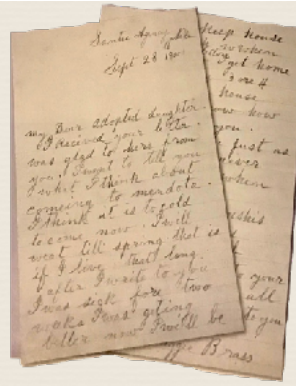 Santee Agency
Sept 28
my Dear adopted daughter.
I received your letter.
was glad to here from
you. I want to tell you
what I think about
comeing to mendota.
I think it is to cold
to come now. I will
wait till spring that is
if I live that long.
after I write to you
I was sick fore two
weeks I was geting
better now I will be
Keep house
broken
get home
3 or 4
house
how how
you.
just as
ever
broken
your
all
to you
Brass